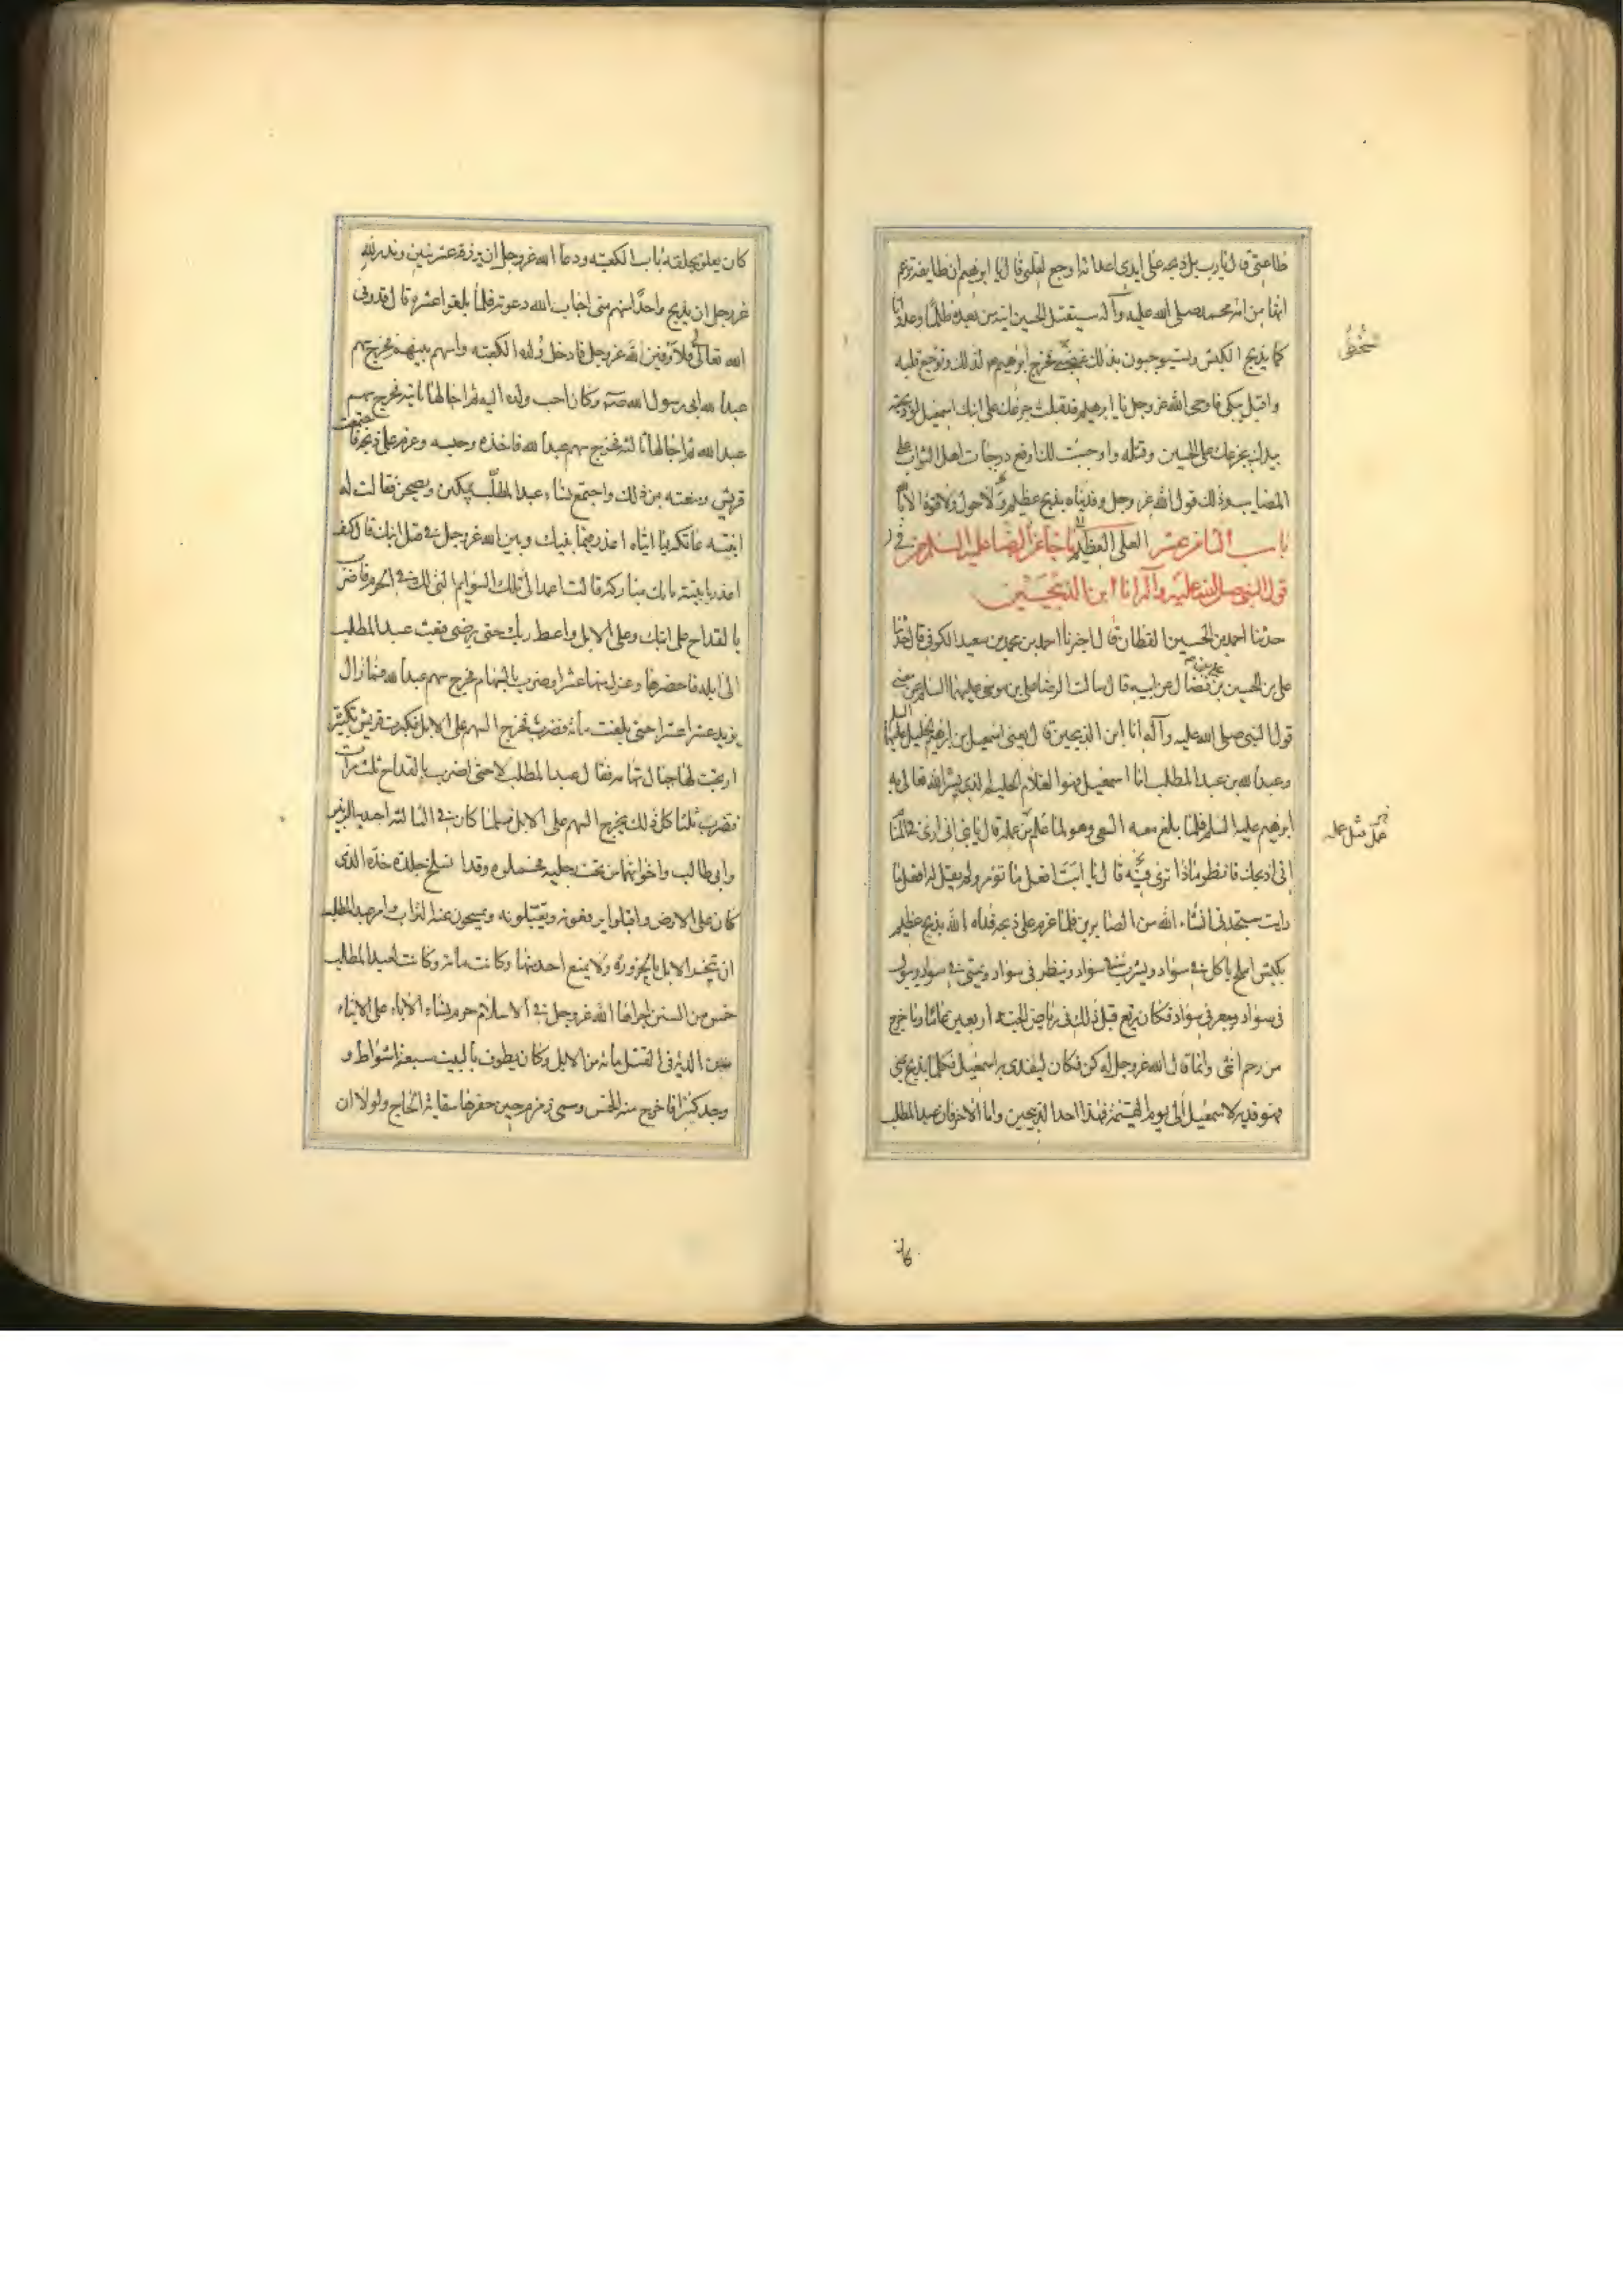 طاعتی قال یا رب بل ذبحه علی ایدی اعدائه اوجع لقلبی قال یا ابرهیم ان طایفة تزعم
انها من امة محمد صلی الله علیه وآله ستقتل الحسین ابنه من بعده ظلما وعدوانا
کما یذبح الکبش ویستوجبون بذلک سخطی فجزع ابرهیم لذلک وتوجع قلبه
واقبل یبکی فاوحی الله عز وجل یا ابرهیم قد قبلت جزعک علی ابنک اسمعیل لو ذبحته
بیدک بجزعک علی الحسین وقتله واوجبت لک ارفع درجات اهل الثواب علی
المصایب وذلک قول الله عز وجل وفدیناه بذبح عظیم ولا حول ولا قوة الا بالله
العلی العظیم
باب الثامن عشر ما جاء عن الرضا علیه السلام فی
قول النبی صلی الله علیه وآله انا ابن الذبیحین
حدثنا احمد بن الحسین القطان قال اخبرنا احمد بن محمد بن سعید الکوفی قال حدثنا
علی بن الحسین بن فضال عن ابیه قال سالت الرضا علی بن موسی علیهما السلام عن معنی
قول النبی صلی الله علیه وآله انا ابن الذبیحین قال یعنی اسمعیل بن ابرهیم الخلیل علیهما السلم
وعبد الله بن عبد المطلب اما اسمعیل فهو الغلام الحلیم الذی بشر الله تعالی به
ابرهیم علیه السلم فلما بلغ معه السعی وهو لما عمل مثل عمله قال یا بنی انی اری فی المنام
انی اذبحک فانظر ماذا تری قال یا ابت افعل ما تؤمر ولم یقل له افعل ما
رایت ستجدنی انشاء الله من الصابرین فلما عزم علی ذبحه فداه الله بذبح عظیم
بکبش املح یاکل فی سواد ویشرب فی سواد وینظر فی سواد ویمشی فی سواد ویبول
فی سواد ویبعر فی سواد فکان یرتع قبل ذلک فی ریاض الجنة اربعین عاما وما خرج
من رحم انثی وانما قال الله عز وجل له کن فکان لیفدی به اسمعیل فکلما یذبح بمنی
فهو فدیة لاسمعیل الی یوم القیمة فهذا احد الذبیحین واما الاخر فان عبد المطلب
سخطی
عمل مثل عمله
کان
کان تعلق بحلقة باب الکعبة ودعا الله عز وجل ان یرزقه عشر بنین ونذر لله
عز وجل ان یذبح واحدا منهم متی اجاب الله دعوته فلما بلغوا عشرة قال قد وفی
الله تعالی فلاوفین لله عز وجل فادخل ولده الکعبة واسهم بینهم فخرج سهم
عبد الله ابی رسول الله وکان احب ولده الیه ثم اجالها ثانیة فخرج سهم
عبد الله ثم اجالها ثالثة فخرج سهم عبد الله فاخذه وحبسه وعزم علی ذبحه فاجتمعت
قریش ومنعته من ذلک واجتمع نساء عبد المطلب یبکین ویصحن فقالت له
ابنته عاتکة یا ابتاه اعذر فیما بینک وبین الله عز وجل فی قتل ابنک قال کیف
اعذر یا بنیة فانک مبارکة قالت اعمد الی تلک السوایم التی لک فی الحرم فاضرب
بالقداح علی ابنک وعلی الابل واعط ربک حتی یرضی فبعث عبد المطلب
الی ابله فاحضرها وعزل منها عشرا وضرب بالسهام فخرج سهم عبد الله فما زال
یزید عشرا عشرا حتی بلغت مائة فضرب فخرج السهم علی الابل فکبرت قریش تکبیرة
ارتجت لها جبال تهامة فقال عبد المطلب لا حتی اضرب بالقداح ثلث مرات
فضرب ثلثا کل ذلک یخرج السهم علی الابل فلما کان فی الثالثة اجتذبه الزبیر
وابی طالب واخوانهما من تحت رجلیه فحملوه وقد انسلخ جلدة خده الذی
کان علی الارض واقبلوا یرفعونه ویقبلونه ویمسحون عنه التراب وامر عبد المطلب
ان تنحر الابل بالحزورة ولا یمنع احد منها وکانت مائة وکانت لعبد المطلب
خمس من السنن اجراها الله عز وجل فی الاسلام حرم نساء الآباء علی الابناء
وسن الدیة فی القتل مائة من الابل وکان یطوف بالبیت سبعة اشواط و
وجد کنزا فاخرج منه الخمس وسمی زمزم حین حفرها سقایة الحاج ولولا ان